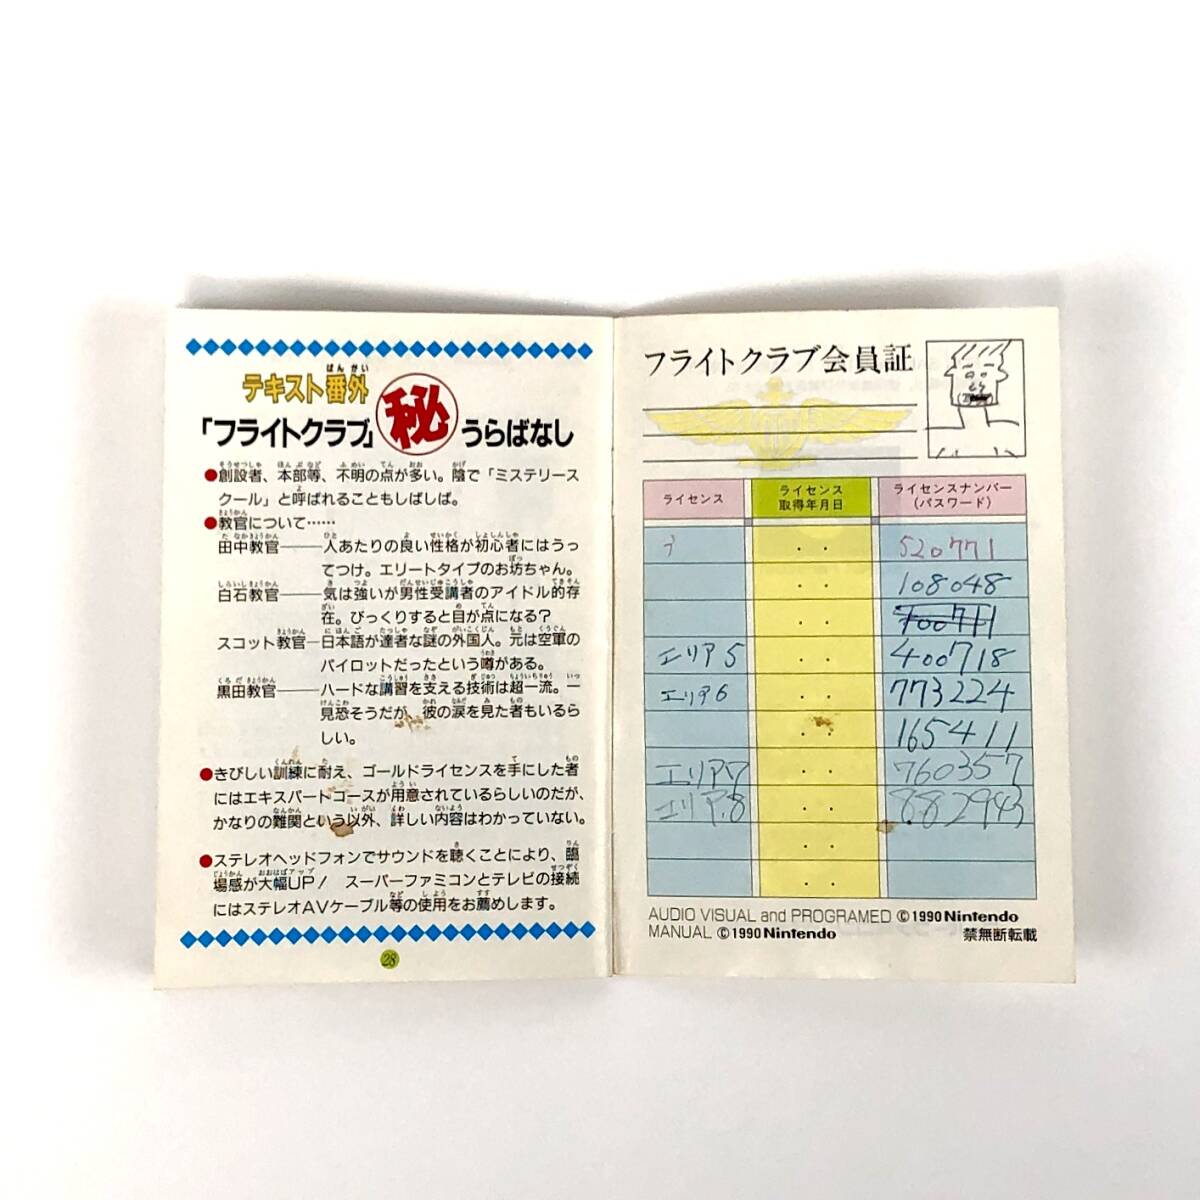 テキスト番外
「フライトクラブ」㊙うらばなし
●創設者、本部等、不明の点が多い。陰で「ミステリース
クール」と呼ばれることもしばしば。
●教官について……
田中教官――人あたりの良い性格が初心者にはうっ
てつけ。エリートタイプのお坊ちゃん。
白石教官――気は強いが男性受講者のアイドル的存
在。びっくりすると目が点になる?
スコット教官―日本語が達者な謎の外国人。元は空軍の
パイロットだったという噂がある。
黒田教官――ハードな講習を支える技術は超一流。一
見恐そうだが、彼の涙を見た者もいるら
しい。
●きびしい訓練に耐え、ゴールドライセンスを手にした者
にはエキスパートコースが用意されているらしいのだが、
かなりの難関という以外、詳しい内容はわかっていない。
●ステレオヘッドフォンでサウンドを聴くことにより、臨
場感が大幅UP! スーパーファミコンとテレビの接続
にはステレオAVケーブル等の使用をお薦めします。
28
フライトクラブ会員証
ライセンス ライセンス取得年月日 ライセンスナンバー(パスワード)
520771
108048
400711
エリア5 400718
エリア6 773224
165411
エリア7 760357
エリア.8 882943
AUDIO VISUAL and PROGRAMED ©1990 Nintendo
MANUAL ©1990 Nintendo 禁無断転載